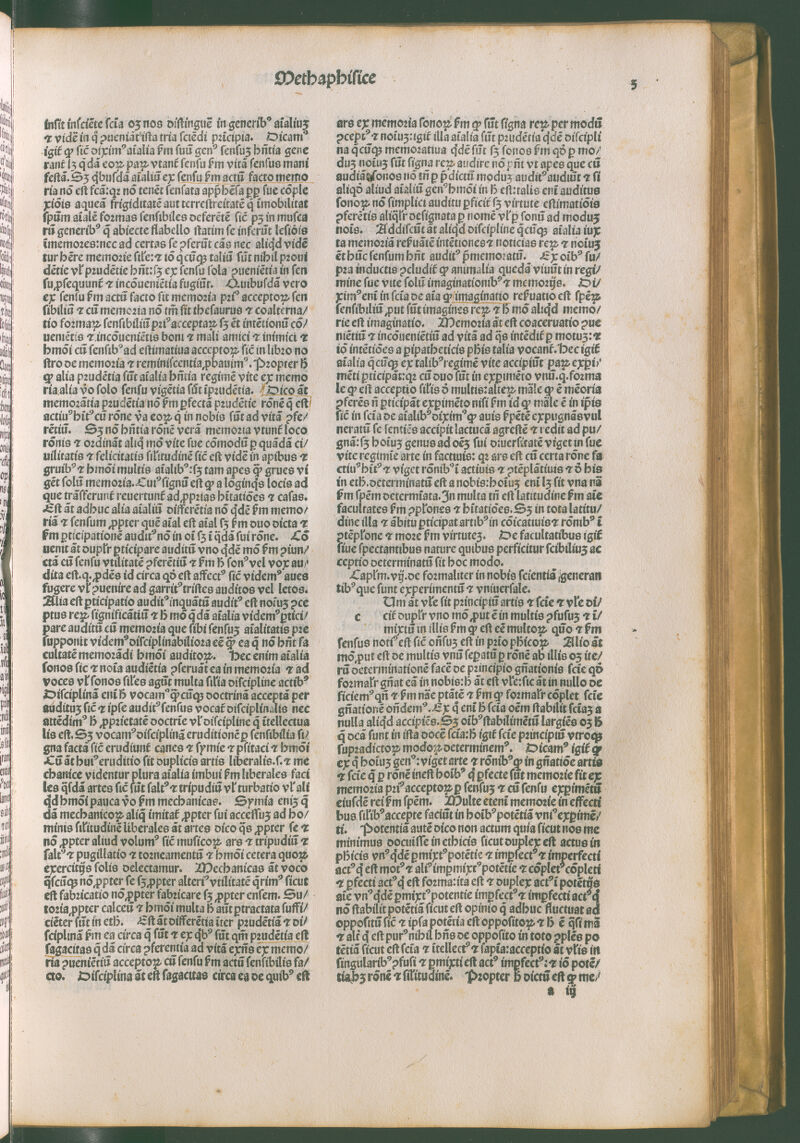 Methaphisice
5
insit insciẽte scĩa oꝫ nos distinguẽ in generibꝰ aĩaliuꝫ
⁊ vidẽ in q̃ ꝯueniãt ista tria sciẽdi prĩcipia. Dicamꝰ
igiť ꝙ sic̃ dixĩmꝰ aĩalia ẜm suũ genꝰ sensuꝫ hñtia gene
rant᷑ lꝫ q̃dã eoꝝ paꝝ vtant᷑ sensu ẜm vitã sensus mani
festã. Sꝫ q̃busdã aĩaliũ ex sensu ẜm actũ facto memo
ria nõ est fcã: qꝛ nõ tenẽt sensata app̃hẽsa ꝓp sue cõple
xiõis aqueã frigiditatẽ aut terrestreitatẽ q̃ ĩmobilitat
spũm aĩalẽ formas sensibiles deferẽtẽ sic̃ pꝫ in musca
rũ generibꝰ q̃ abiecte flabello statim se inferũt lesiõis
ĩmemores: nec ad certas se ꝯferũt cãs nec aliqd vidẽ
tur hẽre memorie sile: ⁊ iõ q̃cũqꝫ taliũ sũt nihil proui
dẽtie vl̓ prudẽtie hñt: sꝫ ex sensu sola ꝯueniẽtia in sen
su ꝓsequunt᷑ ⁊ incõueniẽtia fugiũt. Quibusdã vero
ex sensu ẜm actũ facto sit memoria priꝰ acceptoꝝ sen
sibiliũ ⁊ cũ memoria nõ tm̃ sit thesaurus ⁊ coalterna/
tio formaꝝ sensibiliũ priꝰ acceptaꝝ sꝫ ẽt intẽtionũ cõ/
ueniẽtis ⁊ incõueniẽtis boni ⁊ mali amici ⁊ inimici ⁊
hmõi cũ sensibꝰ ad estimatiua acceptoꝝ sic̃ in libro no
stro de memoria ⁊ reminiscentia ꝓbauimꝰ. Propter h̃
ꝙ alia prudẽtia sũt aĩalia hñtia regimẽ vite ex memo
ria alia v̓o solo sensu vigẽtia sũt ĩprudẽtia. Dico ãt
memorãtia prudẽtia nõ ẜm ꝑfectã prudẽtie rõnẽ q̃ est
actiuꝰ hitꝰ cũ rõne v̓a eoꝝ q̃ in nobis sũt ad vitã ꝯfe/
rẽtiũ. Sꝫ nõ hñtia rõnẽ verã memoria vtunt᷑ loco
rõnis ⁊ ordinãt aliq̃ mõ vite sue cõmodũ ꝑ quãdã ci/
uilitatis ⁊ felicitatis silitudinẽ sic̃ est vidẽ in apibus ⁊
gruibꝰ ⁊ hmõi multis aĩalibꝰ: sꝫ tam apes q̃ grues vi
gẽt solũ memoria. Cuiꝰ signũ est ꝙ a lõginqs locis ad
que trãsferunt᷑ reuertunt᷑ ad ꝓprias hitatiões ⁊ casas.
Est ãt adhuc alia aĩaliũ differẽtia nõ q̃dẽ ẜm memo/
riã ⁊ sensum ꝓpter quẽ aĩal est aĩal sꝫ ẜm duo dicta ⁊
ẜm ꝑticipatione auditꝰ nõ in oĩ sꝫ ĩ q̃dã sui rõne. Cõ
uenit ãt dupl̓r ꝑticipare auditũ vno q̃dẽ mõ ẜm ꝯiun/
ctã cũ sensu vtilitatẽ ꝯferẽtiũ ⁊ ẜm h̃ sonꝰ vel vox au/
dita est. q. ꝓdẽs id circa qõ est affectꝰ sic̃ videmꝰ aues
fugere vl̓ ꝯuenire ad garritꝰ tristes auditos vel letos.
Alia est ꝑticipatio auditꝰ inquãtũ auditꝰ est noiuꝫ ꝯce
ptus reꝝ significãtiũ ⁊ h̃ mõ q̃dã aĩalia videmꝰ ꝑtici/
pare auditũ cũ memoria que sibi sensuꝫ aĩalitatis pre
supponit videmꝰ disciplinabiliora eẽ q̃ ea q̃ nõ hñt fa
cultatẽ memorãdi hmõi auditoꝝ. Hec enim aĩalia
sonos sic ⁊ noĩa audiẽtia ꝯseruãt ea in memoria ⁊ ad
voces vl̓ sonos siles agũt multa silia discipline actibꝰ
Disciplinã eni h̃ vocamꝰ q̃cũqꝫ doctrinã acceptã per
audituꝫ sic̃ ⁊ ipse auditꝰ sensus vocat᷑ disciplinalis nec
attẽdimꝰ h̃ ꝓprietatẽ doctrie vl̓ discipline q̃ ĩtellectua
lis est. Sꝫ vocamꝰ disciplinã eruditionẽ ꝑ sensibilia si/
gna factã sic̃ erudiunt᷑ canes ⁊ symie ⁊ psitaci ⁊ hmõi
Cũ ãt huiꝰ eruditio sit duplicis artis liberalis. s. ⁊ me
chanice videntur plura aĩalia imbui ẜm liberales faci
les q̃sdã artes sic̃ sũt saltꝰ ⁊ tripudiũ vl̓ turbatio vl̓ ali
qd hmõi pauca v̓o ẜm mechanicas. Symia enĩꝫ q̃
dã mechanicoꝝ aliq̃ imitat᷑ ꝓpter sui accessuꝫ ad ho/
minis silitudinẽ liberales ãt artes dico q̃s ꝓpter se ⁊
nõ ꝓpter aliud volumꝰ sic̃ musicoꝝ ars ⁊ tripudiũ ⁊
saltꝰ ⁊ pugillatio ⁊ torneamentũ ⁊ hmõi cetera quoꝝ
exercitijs solis delectamur. Mechanicas ãt voco
q̃scũqꝫ nõ ꝓpter se sꝫ ꝓpter alteriꝰ vtilitatẽ q̃rimꝰ sicut
est fabricatio nõ ꝓpter fabricare sꝫ ꝓpter ensem. Su/
toria ꝓpter calceũ ⁊ hmõi multa h̃ aũt ꝑtractata suffi/
ciẽter sũt in eth. Est ãt differẽtia ĩter prudẽtiã ⁊ di/
sciplinã ẜm ea circa q̃ sũt ⁊ ex qbꝰ sũt qm̃ prudẽtia est
sagacitas q̃dã circa ꝯferentia ad vitã exñs ex memo/
ria ꝯueniẽtiũ acceptoꝝ cũ sensu ẜm actũ sensibilis fa/
cto. Disciplina ãt est sagacitas circa ea de quibꝰ est
ars ex memoria sonoꝝ ẜm ꝙ sũt signa reꝝ per modũ
ꝯceptꝰ ⁊ noiuꝫ: igiť illa aĩalia sũt prudẽtia q̃dẽ discipli
na q̃cũqꝫ memoratiua q̃dẽ sũt sꝫ sonos ẜm qõ ꝑ mo/
duꝫ noiuꝫ sũt signa reꝝ audire nõ pñt vt apes que cũ
audiãt sonos nõ tñ ꝑ p̃dictũ moduꝫ auditꝰ audiũt ⁊ si
aliqõ aliud aĩaliũ genꝰ hmõi in h̃ est: talis eni auditus
sonoꝝ nõ simplici auditu ꝑficit᷑ sꝫ virtute estimatiõis
ꝯferẽtis aliql̓r designata ꝑ nomẽ vl̓ ꝑ sonũ ad moduꝫ
noĩs. Addiscũt ãt aliqd discipline q̃cũqꝫ aĩalia iux
ta memoriã reẜuãte intẽtiones ⁊ noticias reꝝ ⁊ noiuꝫ
ẽt huc sensum hñt auditꝰ p̃memoratũ. Ex oibꝰ su/
pra inductis ꝯcludit᷑ ꝙ animalia quedã viuũt in regi/
mine sue vite solũ imaginationibꝰ ⁊ memorijs. Di/
ximꝰ eni in scĩa de aĩa ꝙ imaginatio reẜuatio est speꝝ
sensibiliũ ꝓut sũt imagines reꝝ ⁊ h̃ mõ aliqd memo/
rie est imaginatio. Memoria ãt est coaceruatio ꝯue
niẽtiũ ⁊ incõueniẽtiũ ad vitã ad q̃s intẽdit᷑ ꝑ motuꝫ: ⁊
iõ intẽtiões a ꝑipatheticis phis talia vocant᷑. Hec igiť
aĩalia q̃cũqꝫ ex talibꝰ regimẽ vite accipiũt paꝝ expi/
mẽti ꝑticipãt: qꝛ cũ duo sũt in exꝑimẽto vnũ. q. forma
le ꝙ est acceptio silis õ multis: alteꝝ male ꝙ ẽ mẽoria
ꝯferẽs ñ ꝑticipãt exꝑimẽto nisi ẜm id ꝙ male ẽ in ipĩs
sic̃ in scĩa de aĩalibꝰ diximꝰ ꝙ auis ẜpẽte expugnãs vul
neratũ se sentiẽs accipit lactucã agrestẽ ⁊ redit ad pu/
gnã: sꝫ hoĩuꝫ genus ad oẽꝫ sui diuersitatẽ viget in sue
vite regimie arte in factiuis: qꝛ ars est cũ certa rõne fa
ctiuꝰ hitꝰ ⁊ viget rõnibꝰ ĩ actiuis ⁊ ꝯtẽplãtiuis ⁊ õ his
in eth. determinatũ est a nobis: hoĩuꝫ eni lꝫ sit vna nã
ẜm spẽm determĩata. In multa tñ est latitudine ẜm aĩe
facultates ẜm ꝯplõnes ⁊ hitatiões. Sꝫ in tota latitu/
dine illa ⁊ ãbitu ꝑticipat artibꝰ in cõicatiuis ⁊ rõnibꝰ ĩ
ꝯtẽplõne ⁊ more ẜm virtuteꝫ. De facultatibus igiť
siue spectantibus nature quibus perficitur scibiliuꝫ ac
ceptio determinatũ sit hoc modo.
Caplm. vij. de formaliter in nobis scientiã generan
tibꝰ que sunt experimentũ ⁊ vniuersale.
c
Um ãt vl̓e sit principiũ artis ⁊ scĩe ⁊ vl̓e di/
cit᷑ duplr vno mõ ꝓut ẽ in multis ꝯfusuꝫ ⁊ ĩ/
mixtũ in illis ẜm ꝙ est eẽ multoꝝ quõ ⁊ ẜm
sensus notiꝰ est sic̃ õnsuꝫ est in prio phicoꝝ Alio ãt
mõ ꝓut est de multis vnũ sepatũ ꝑ rõnẽ ab illis oꝫ ite/
rũ determinationẽ facẽ de principio gñationis scĩe qõ
formalr gñat eã in nobis: h̃ ãt est vl̓e: sic ãt in nullo de
ficiemꝰ qñ ⁊ ẜm nãe ptãtẽ ⁊ ẜm ꝙ formalr cõplet᷑ scĩe
gñationẽ oñdemꝰ. Ex q̃ eni h̃ scĩa oẽm stabilit᷑ scĩaꝫ a
nulla aliqd accipiẽs. Sꝫ oibꝰ stabilimẽtũ largiẽs oꝫ h̃
ꝙ ocã sunt in ista docẽ scĩa: h̃ igiť scĩe prĩcipiũ vtroqꝫ
supradictoꝝ modoꝝ determinemꝰ. Dicamꝰ igiť ꝙ
ex q̃ hoĩuꝫ genꝰ: viget arte ⁊ rõnibꝰ ꝙ in gñatiõe artis
⁊ scĩe q̃ ꝑ rõnẽ inest hoĩbꝰ q̃ ꝑfecte sũt memorie fit ex
memoria priꝰ acceptoꝝ ꝑ sensuꝫ ⁊ cũ sensu exꝑimẽtũ
eiusdẽ rei ẜm spẽm. Multe etenĩ memorie in effecti
bus silibꝰ accepte faciũt in hoĩbꝰ potẽtiã vniꝰ exꝑimẽ/
ti. Potentiã autẽ dico non actum quia sicut nos me
minimus docuisse in ethicis sicut duplex est actus in
phicis vnꝰ q̃dẽ ꝑmixtꝰ potẽtie ⁊ impfectꝰ ⁊ imperfecti
actꝰ q̃ est motꝰ ⁊ aliꝰ impmixtꝰ potẽtie ⁊ cõpletꝰ cõpleti
⁊ ꝑfecti actꝰ q̃ est forma: ita est ⁊ duplex actꝰ ĩ potẽtijs
aĩe vnꝰ q̃dẽ ꝑmixtꝰ potentie impfectꝰ ⁊ impfecti actꝰ q̃
nõ stabilit potẽtiã sicut est opinio q̃ adhuc fluctuat ad
oppositũ sic̃ ⁊ ipsa potẽtia est oppositoꝝ ⁊ h̃ ẽ q̃si mã
⁊ alẽ q̃ est purꝰ nihil hñs de opposito in toto ꝯplẽs po
tẽtiã sicut est scĩa ⁊ ĩtellectꝰ ⁊ sapĩa: acceptio ãt vl̓is in
singularibꝰ ꝯfusi ⁊ ꝑmixti est actꝰ impfectꝰ: ⁊ iõ potẽ/
tia hꝫ rõnẽ ⁊ silitudinẽ. Propter h̃ dictũ est ꝙ me/
a iij